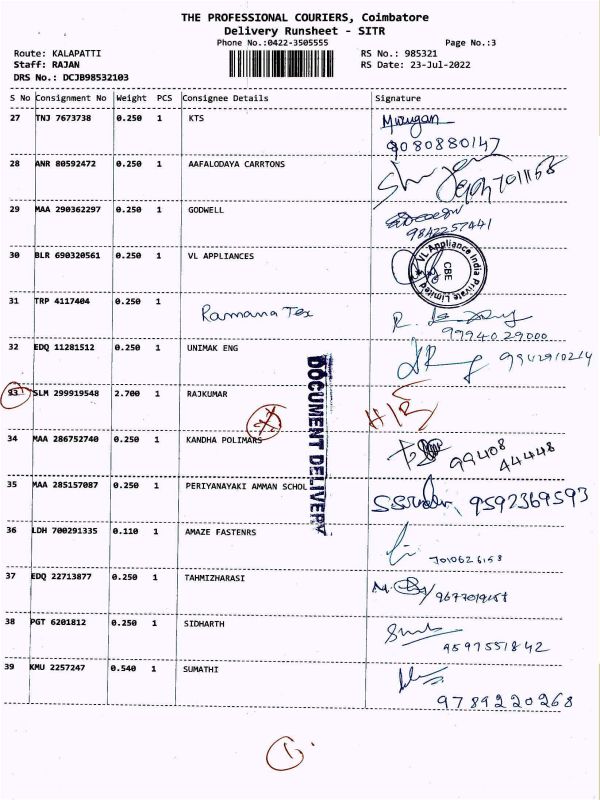 THE PROFESSIONAL COURIERS, Coimbatore
Delivery Runsheet - SITR
Phone No.:0422-3505555
Page No.:3
Route: KALAPATTI
RS No.: 985321
Staff: RAJAN
RS Date: 23-Jul-2022
DRS No.: DCJB98532103
S No Consignment No Weight PCS Consignee Details Signature
27 TNJ 7673738 0.250 1 KTS Murugan
9080880147
28 ANR 80592472 0.250 1 AAFALODAYA CARRTONS
29 MAA 290362297 0.250 1 GODWELL
9842257441
30 BLR 690320561 0.250 1 VL APPLIANCES
VL Appliance India Private Limited
CBE
31 TRP 4117404 0.250 1 Ramana Tex
9994029000
32 EDQ 11281512 0.250 1 UNIMAK ENG
33 SLM 299919548 2.700 1 RAJKUMAR
34 MAA 286752740 0.250 1 KANDHA POLIMARS
99408
44448
DOCUMENT DELIVERY
35 MAA 285157087 0.250 1 PERIYANAYAKI AMMAN SCHOL
9592369593
36 LDH 700291335 0.110 1 AMAZE FASTENRS
37 EDQ 22713877 0.250 1 TAHMIZHARASI
38 PGT 6201812 0.250 1 SIDHARTH
9597551842
39 KMU 2257247 0.540 1 SUMATHI
9789220268